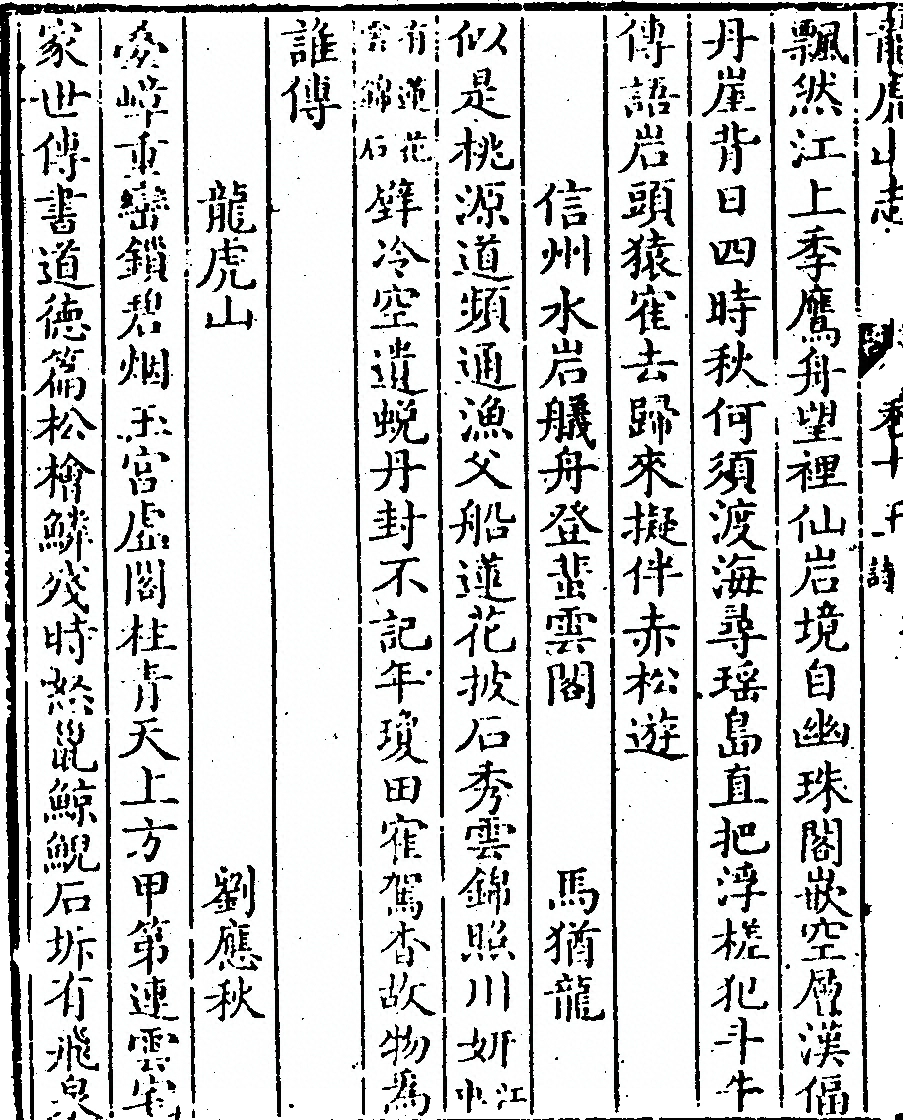 龍虎山志 卷十下 詩
飄然江上季鷹舟望裡仙岩境自幽珠閣嵌空層漢偪
丹崖背日四時秋何須渡海尋瑤島直把浮槎犯斗牛
傳語岩頭猿寉去歸來擬伴赤松遊
信州水岩艤舟登蜚雲閣 馬猶龍
似是桃源道頻通漁父船蓮花披石秀雲錦照川妍江中
有蓮花雲錦石壁冷空遺蛻丹封不記年瓊田寉駕杳故物為
誰傳
龍虎山 劉應秋
疊嶂重巒鎖碧烟玉宮虛閣柱青天上方甲第連雲宅
家世傳書道德篇松檜鱗殘時怒鼉鯨鯢石坼有飛泉